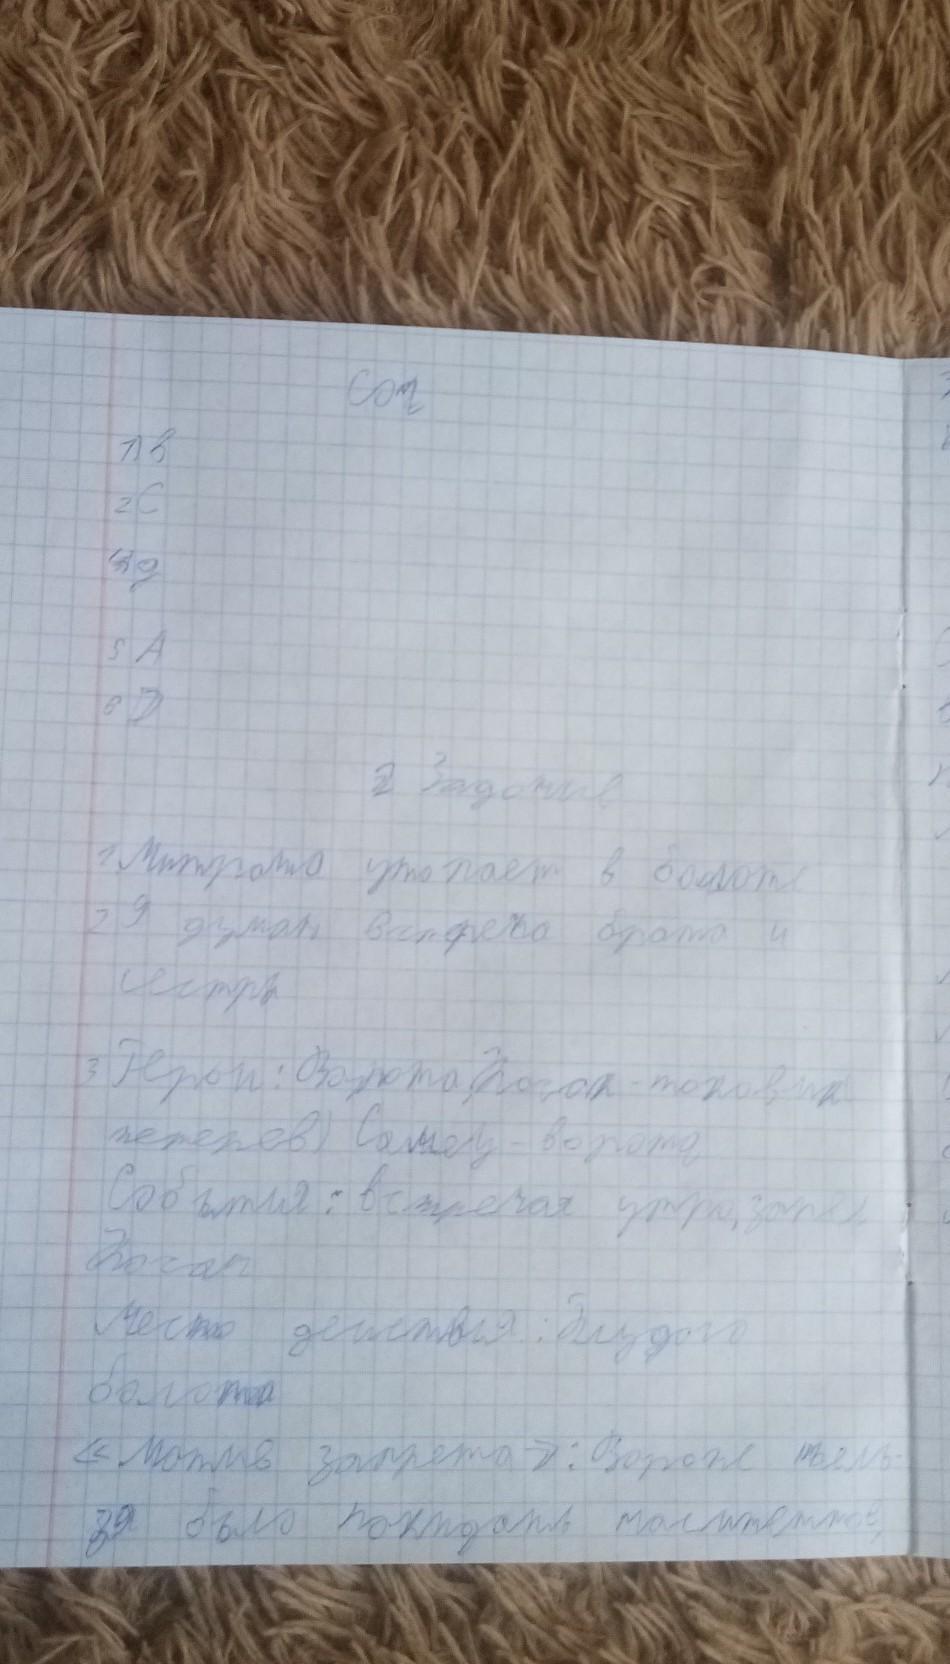 Соч
1) в
2 С
д
5 А
6 D
2 Задание
1 Митраша утопает в болоте
2 Я думаю встреча брата и
сестры
3 Герои: Ворона, Косач-токовик
тетерев) Самец-ворона
События: встречая утро, запел
Косач
Место действия: Блудого
болота
«Мотив запрета»: Вороне нель-
зя было покидать